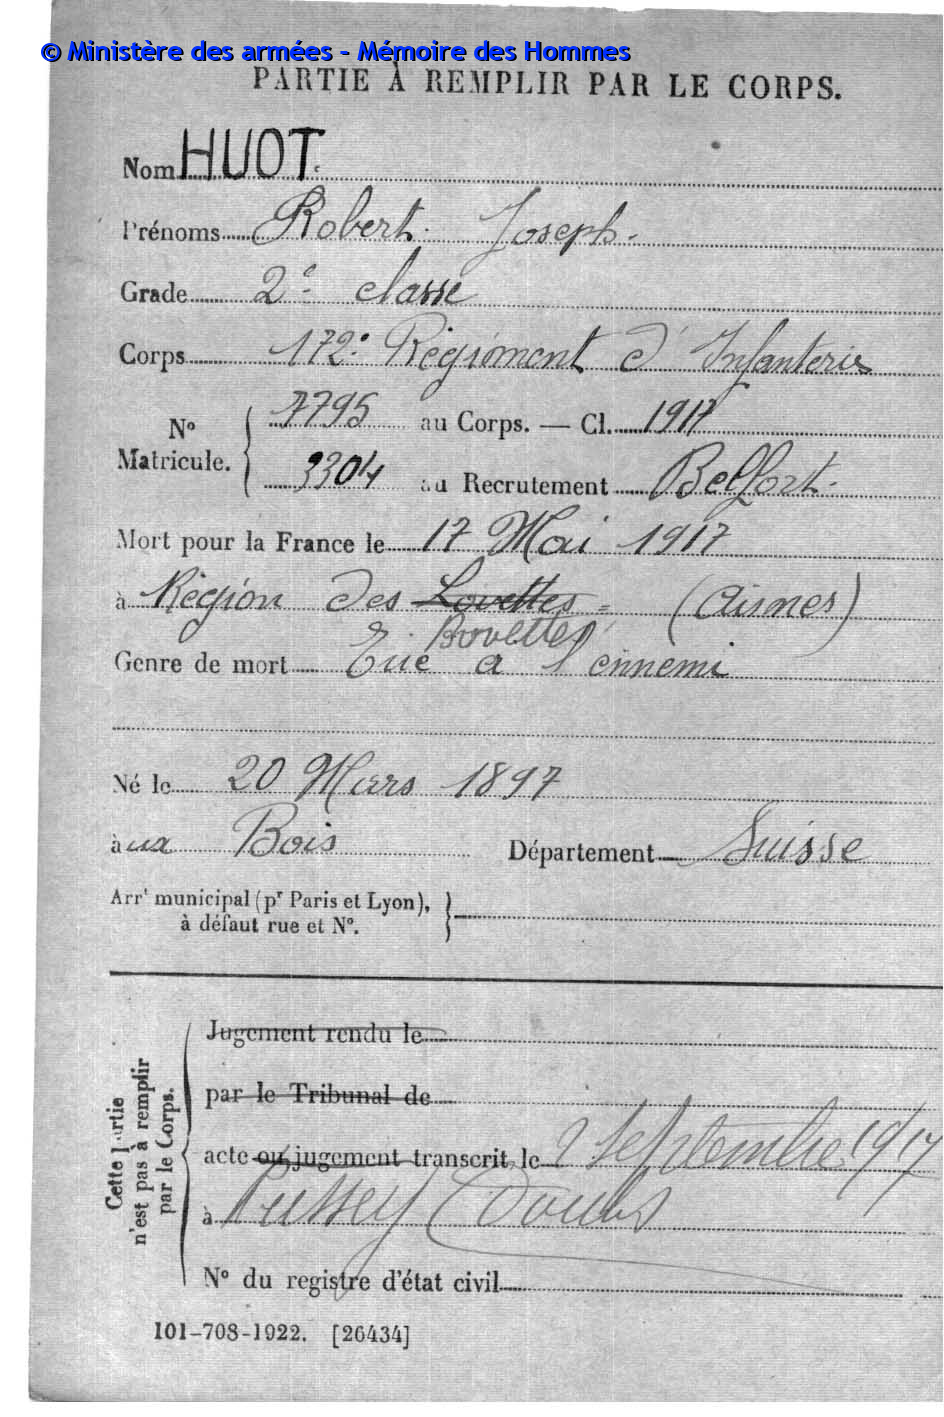 © Ministère des armées - Mémoire des Hommes
PARTIE À REMPLIR PAR LE CORPS.
Nom HUOT
Prénoms Robert Joseph
Grade 2e classe
Corps 172e Régiment d'Infanterie
No Matricule. 7795 au Corps. — Cl. 1917
3304 au Recrutement Belfort
Mort pour la France le 17 Mai 1917
à Région des Lovettes (Aisnes)
Bovettes
Genre de mort Tué à l'ennemi
Né le 20 Mars 1897
àux Bois Département Suisse
Arrt municipal (pr Paris et Lyon),
à défaut rue et No.
Cette partie
n'est pas à remplir
par le Corps.
Jugement rendu le
par le Tribunal de
acte ou jugement transcrit le 2 Septembre 1917
à Pussey Doubs
No du registre d'état civil
101-708-1922. [26434]